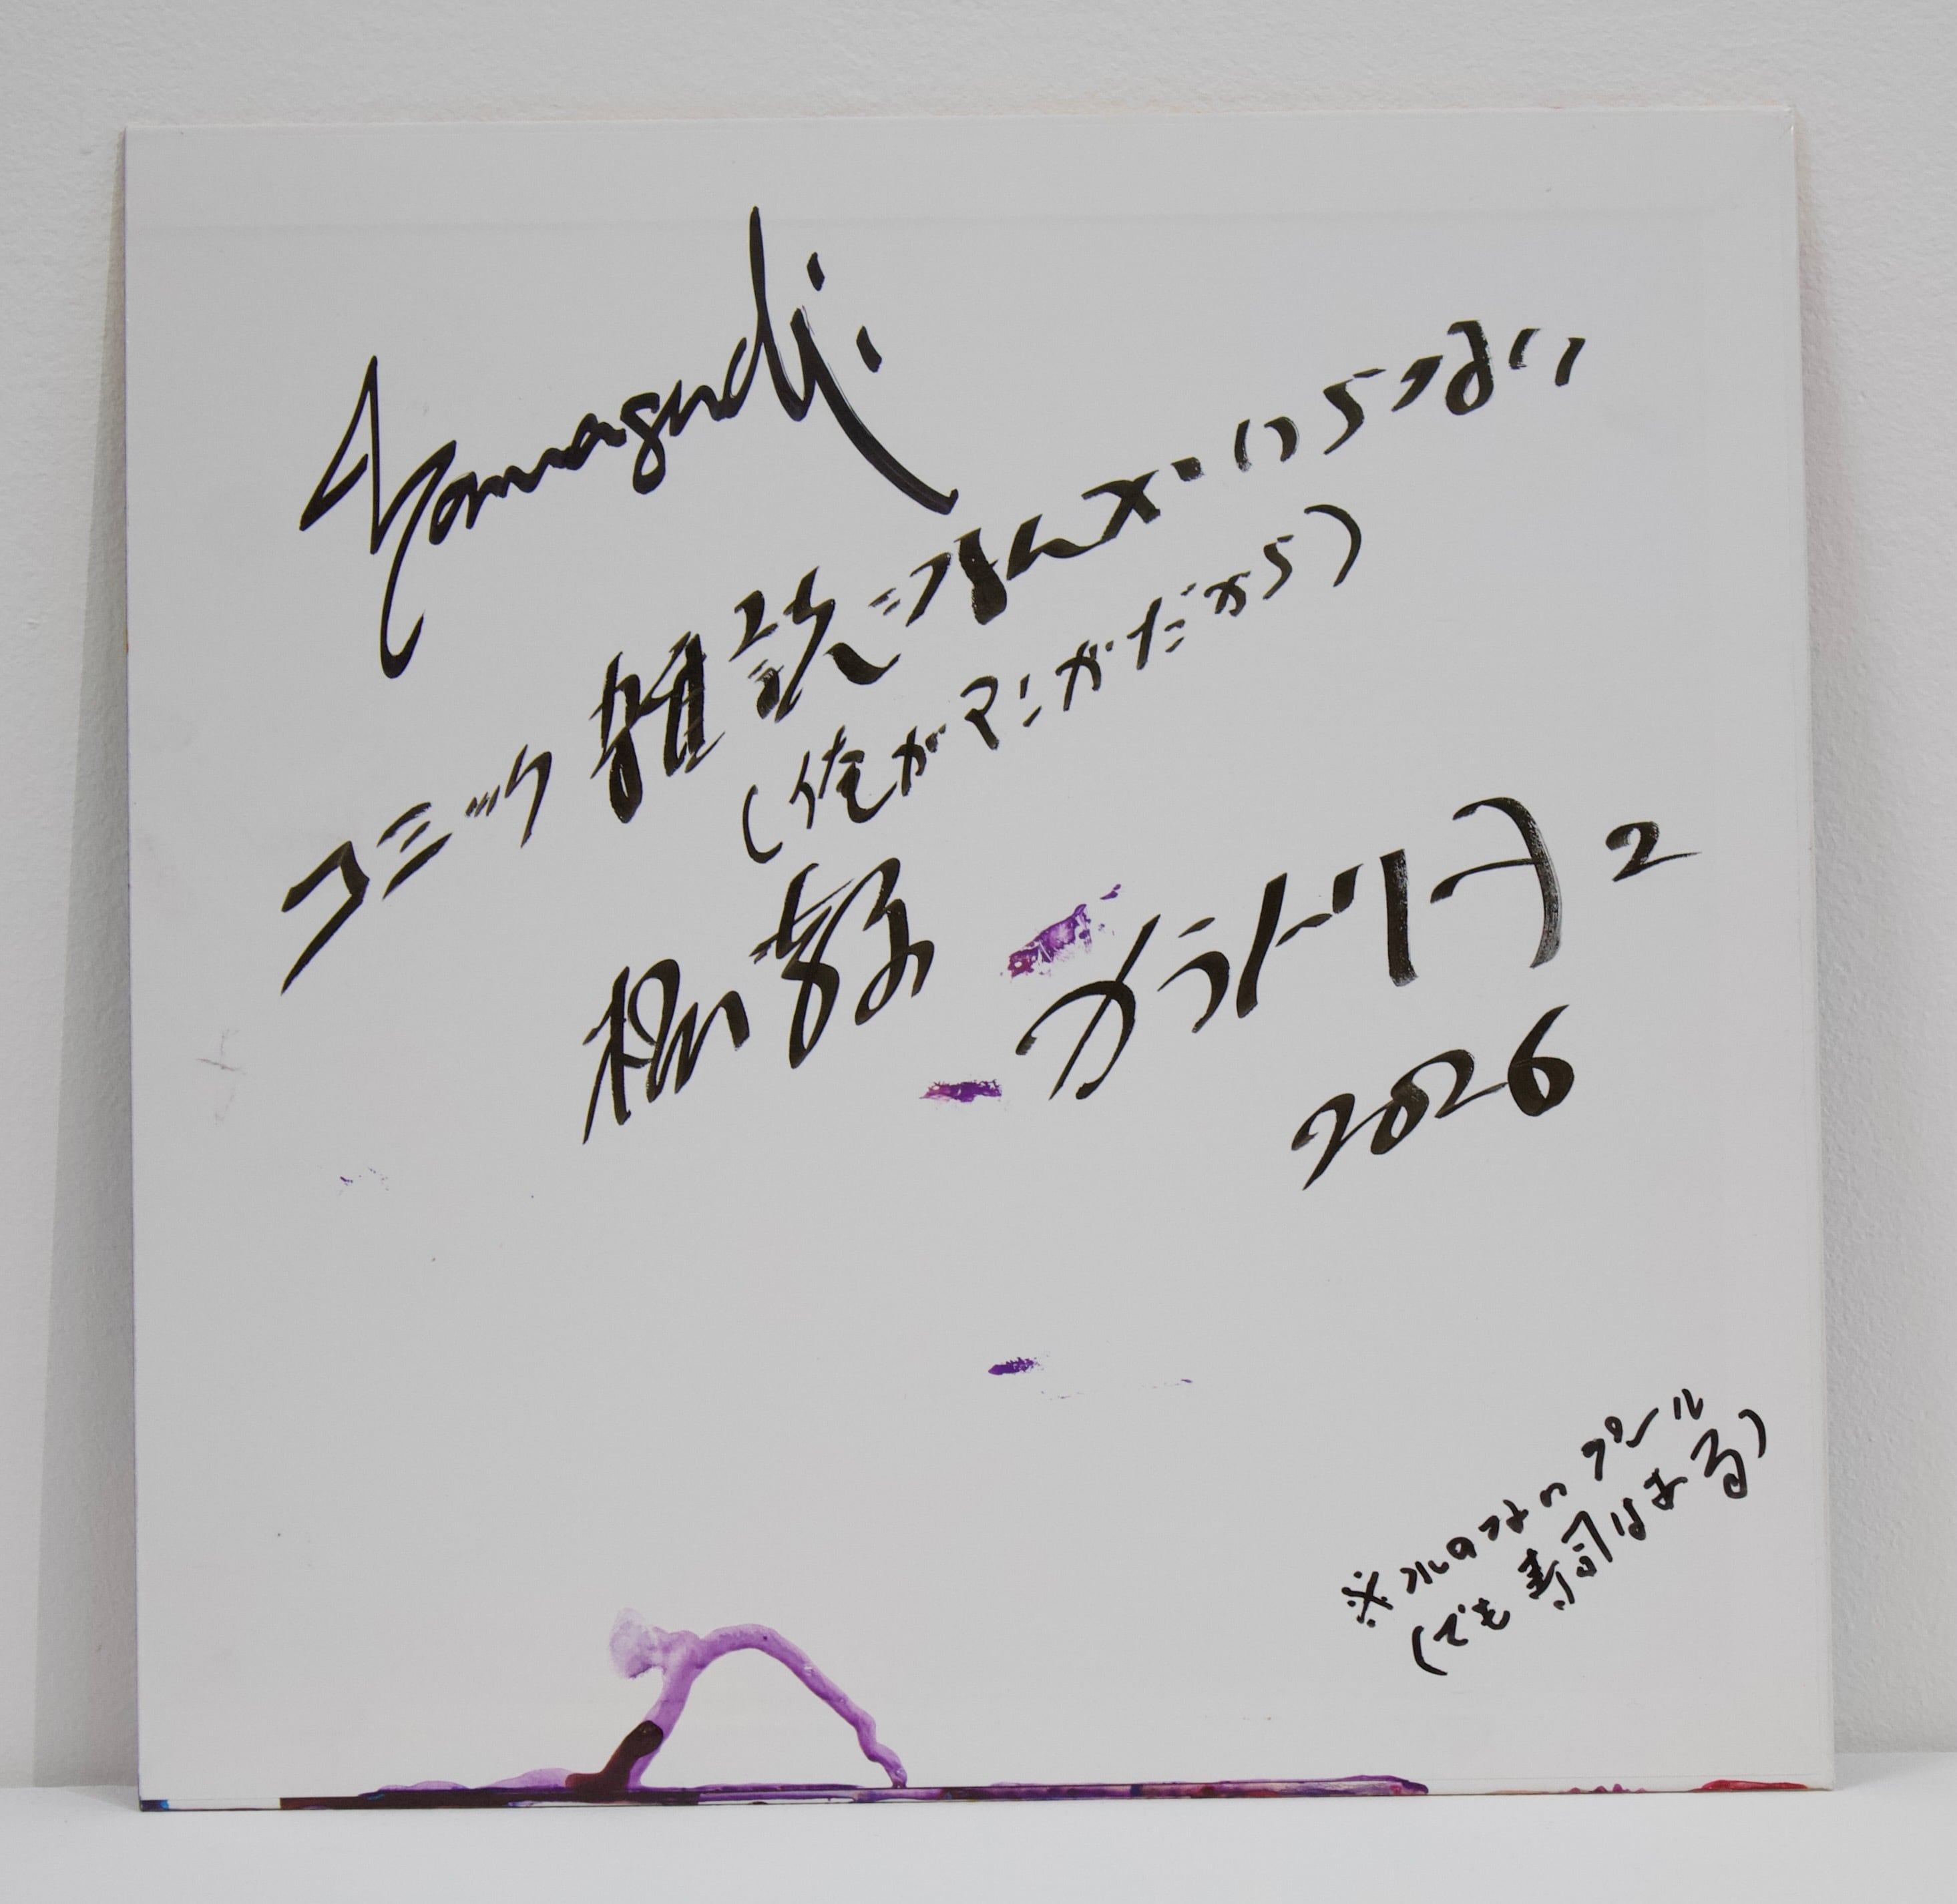 Yamaguchi.
コミック雑誌なんかいらない
(俺がマンガだから)
2
2026
※水のないプール
(でも寿司はある)